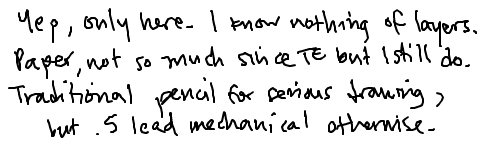 Yep, only here. I know nothing of layers.
Paper, not so much since TE but I still do.
Traditional pencil for serious drawing,
but .5 lead mechanical otherwise.